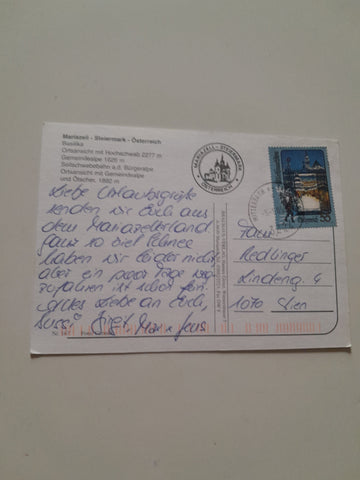 Mariazell - Steiermark - Österreich
Basilika
Ortsansicht mit Hochschwab 2277 m
Gemeindealpe 1626 m
Seilschwebebahn a.d. Bürgeralpe
Ortsansicht mit Gemeindealpe
und Ötscher, 1892 m
Liebe Urlaubsgrüße
senden wir Euch aus
dem Mariazellerland
ganz so viel Schnee
haben wir leider nicht
aber ein paar Tage weg
zufahren ist schon fein.
Liebe an Euch,
Bussi
MARIAZELL - STEIERMARK
ÖSTERREICH
Fam.
Redlinger
Lindeng. 4
1070 Wien